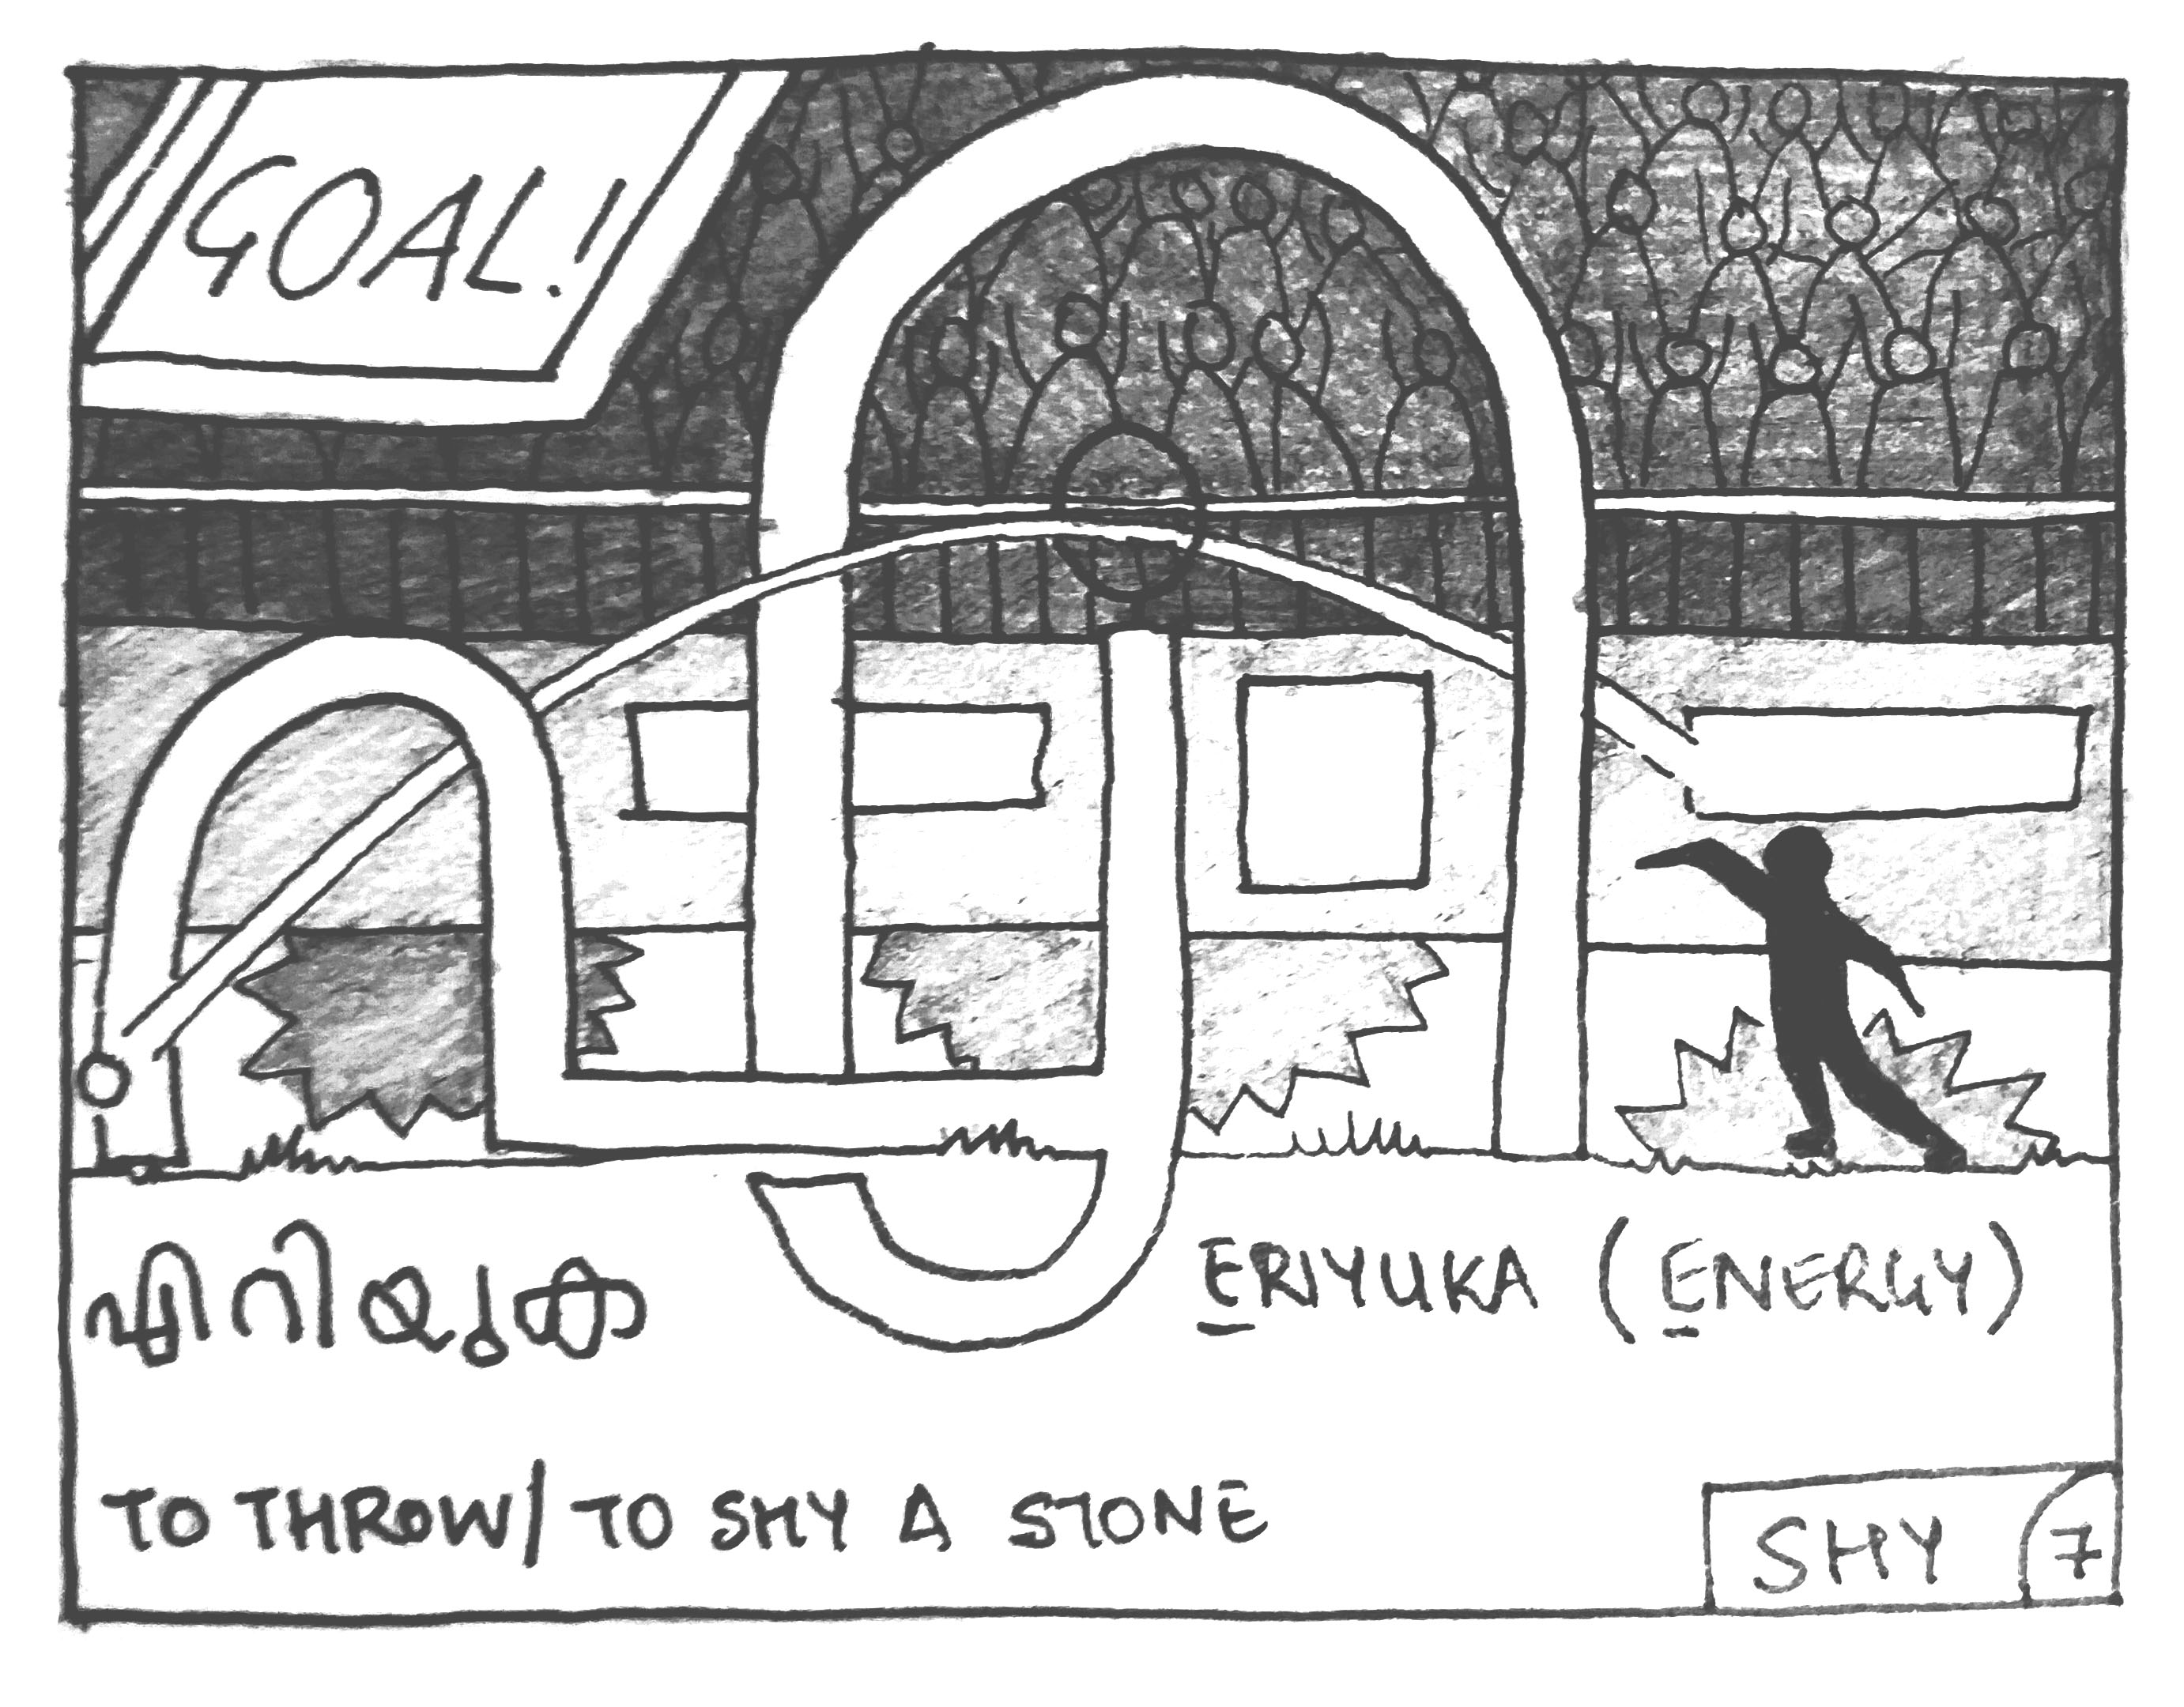 GOAL!
എ
എറിയുക
ERIYUKA (ENERGY)
TO THROW/ TO SHY A STONE
SHY 7